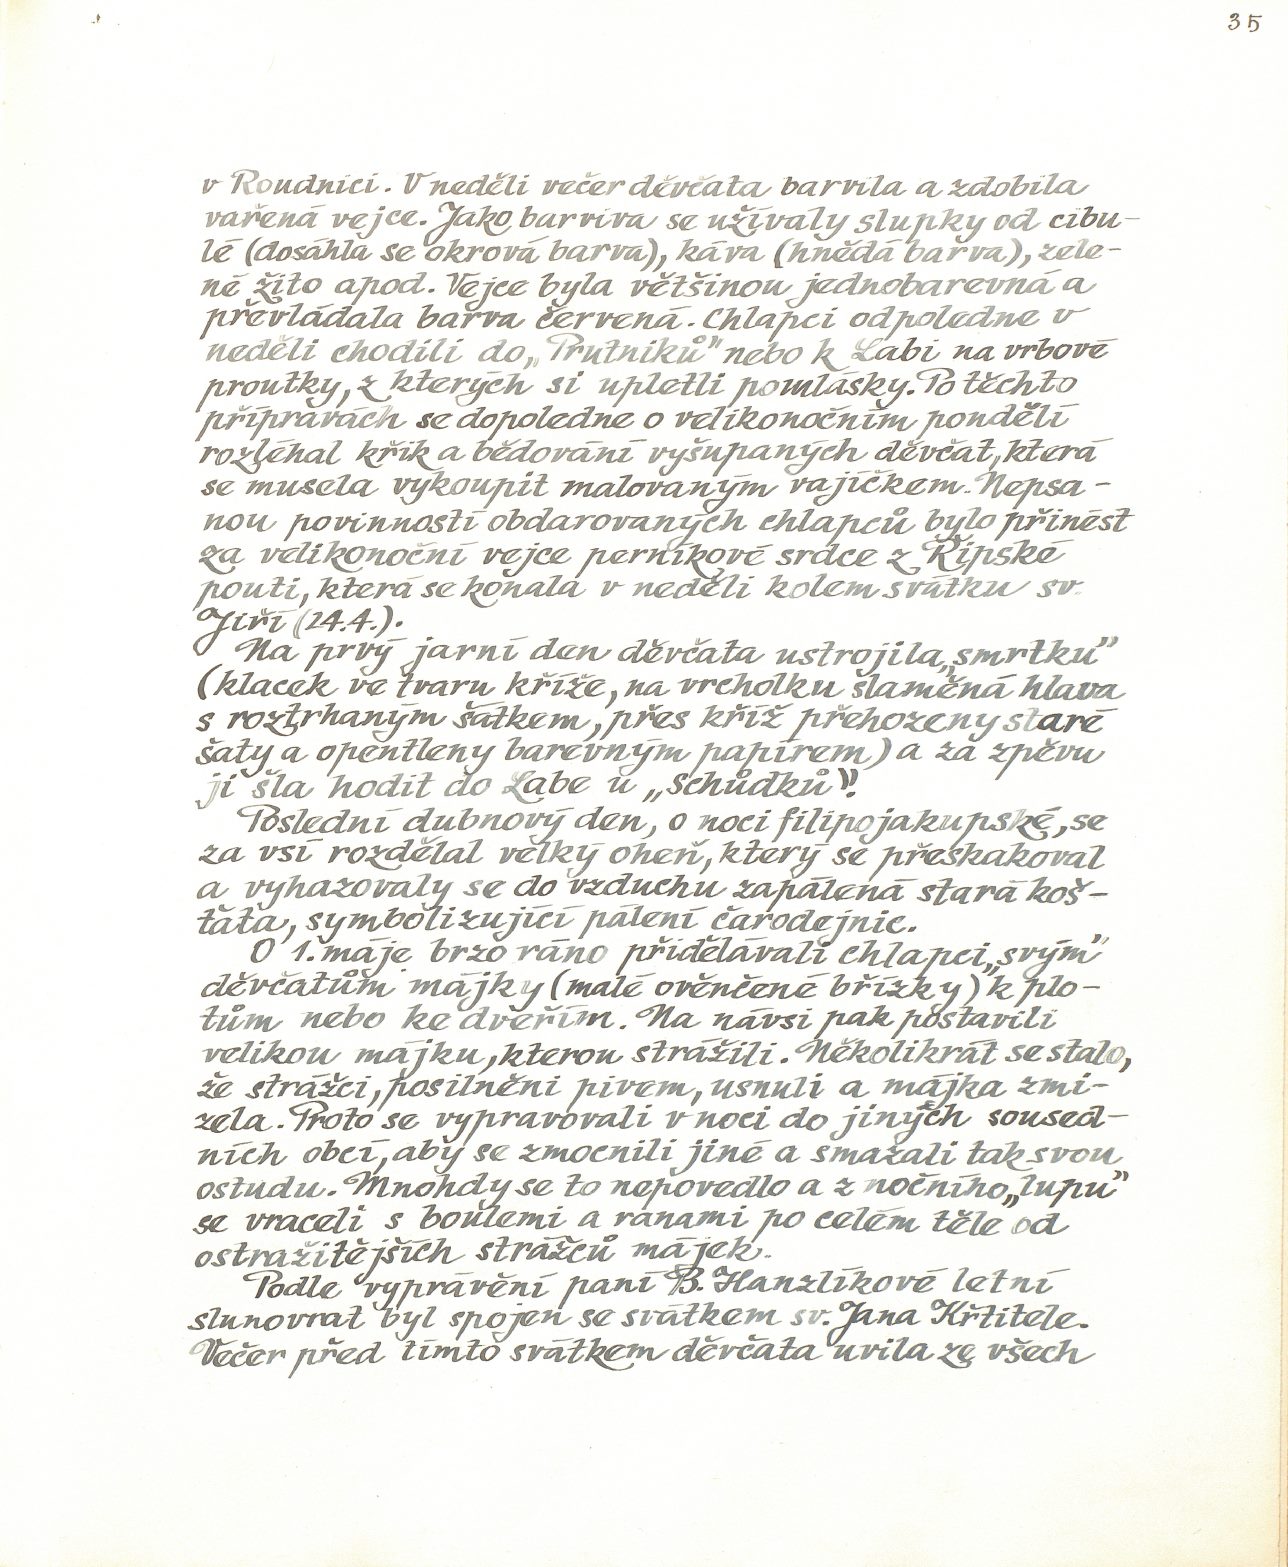 35
v Roudnici. V neděli večer děvčata barvila a zdobila
vařená vejce. Jako barviva se užívaly slupky od cibu-
le (dosáhla se okrová barva), káva (hnědá barva), zele-
né žito apod. Vejce byla většinou jednobarevná a
převládala barva červená. Chlapci odpoledne v
neděli chodili do „Prutníků" nebo k Labi na vrbové
proutky, z kterých si upletli pomlásky. Po těchto
přípravách se dopoledne o velikonočním pondělí
rozléhal křik a bědování vyšupaných děvčat, která
se musela vykoupit malovaným vajíčkem. Nepsa-
nou povinností obdarovaných chlapců bylo přinést
za velikonoční vejce perníkové srdce z Řípské
pouti, která se konala v neděli kolem svátku sv.
Jiří (24.4.).
Na prvý jarní den děvčata ustrojila „smrtku"
(klacek ve tvaru kříže, na vrcholku slaměná hlava
s roztrhaným šátkem, přes kříž přehozeny staré
šaty a opentleny barevným papírem) a za zpěvu
ji šla hodit do Labe u „Schůdků".
Poslední dubnový den, o noci filipojakupské, se
za vsí rozdělal velký oheň, který se přeskakoval
a vyhazovaly se do vzduchu zapálená stará koš-
ťata, symbolizující pálení čarodejnic.
O 1. máje brzo ráno přidělávali chlapci „svým"
děvčatům májky (malé ověnčené břízky) k plo-
tům nebo ke dveřím. Na návsi pak postavili
velikou májku, kterou strážili. Několikrát se stalo,
že strážci, posilněni pivem, usnuli a májka zmi-
zela. Proto se vypravovali v noci do jiných soused-
ních obcí, aby se zmocnili jiné a smazali tak svou
ostudu. Mnohdy se to nepovedlo a z nočního „lupu"
se vraceli s boulemi a ranami po celém těle od
ostražitějších strážců májek.
Podle vyprávění paní B. Hanzlíkové letní
slunovrat byl spojen se svátkem sv. Jana Křtitele.
Večer před tímto svátkem děvčata uvila ze všech